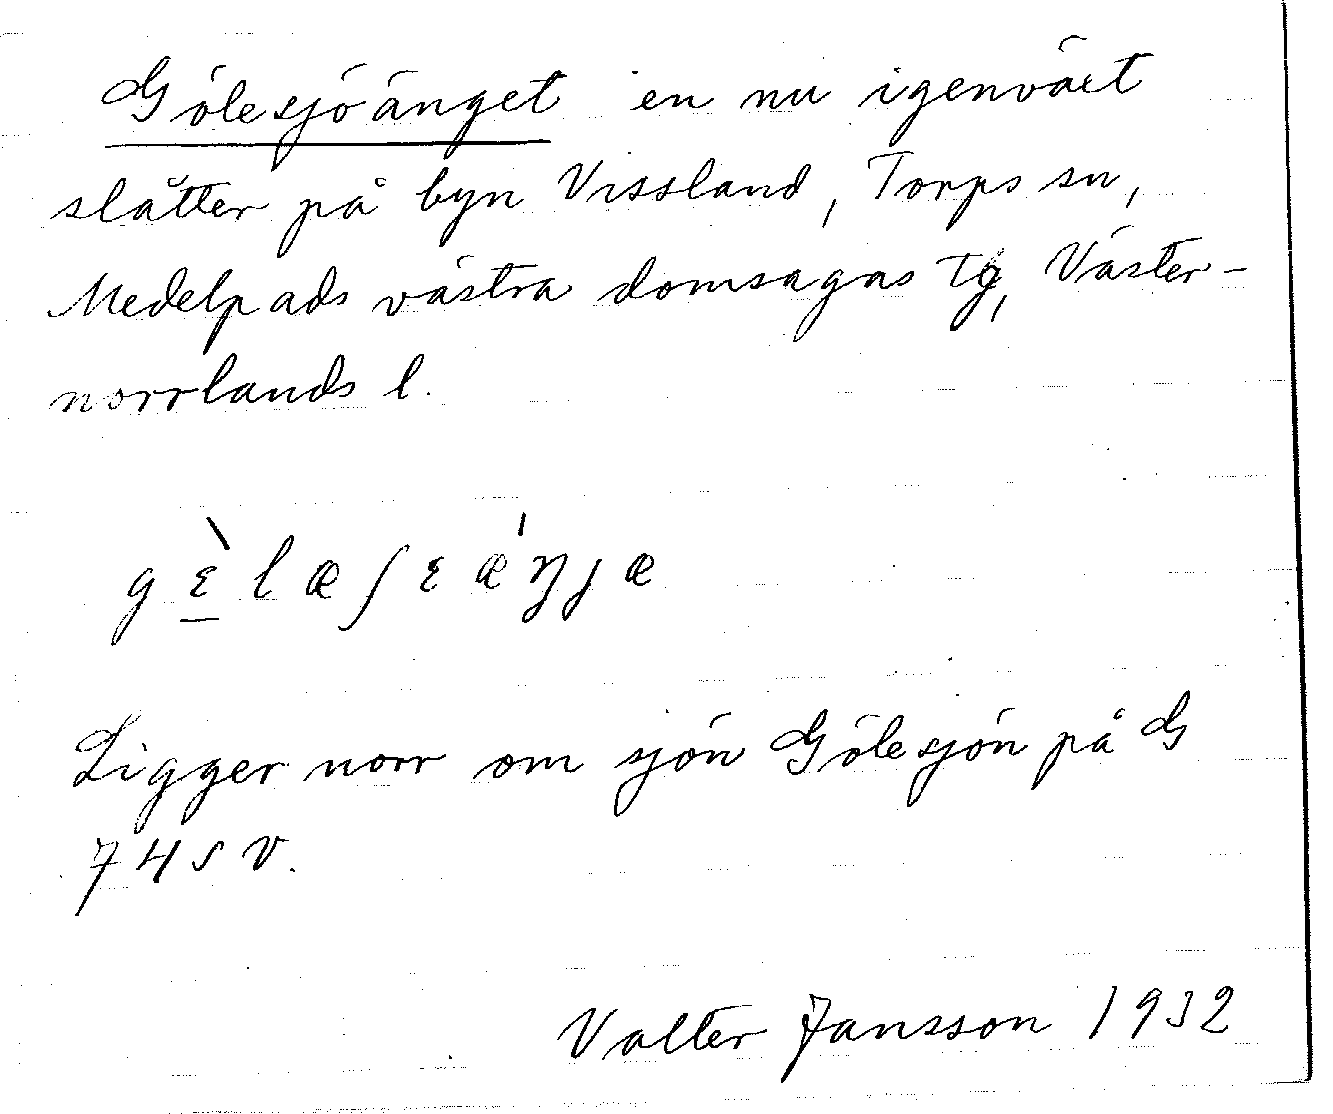 Gölesjöänget en nu igenväxt
slåtter på byn Vissland, Torps sn,
Medelpads västra domsagas Tg, Väster-
norrlands l.
gɛ̀læʃɛǽŋjæ
Ligger norr om sjön Gölesjön på G
74 s v.
Valter Jansson 1932